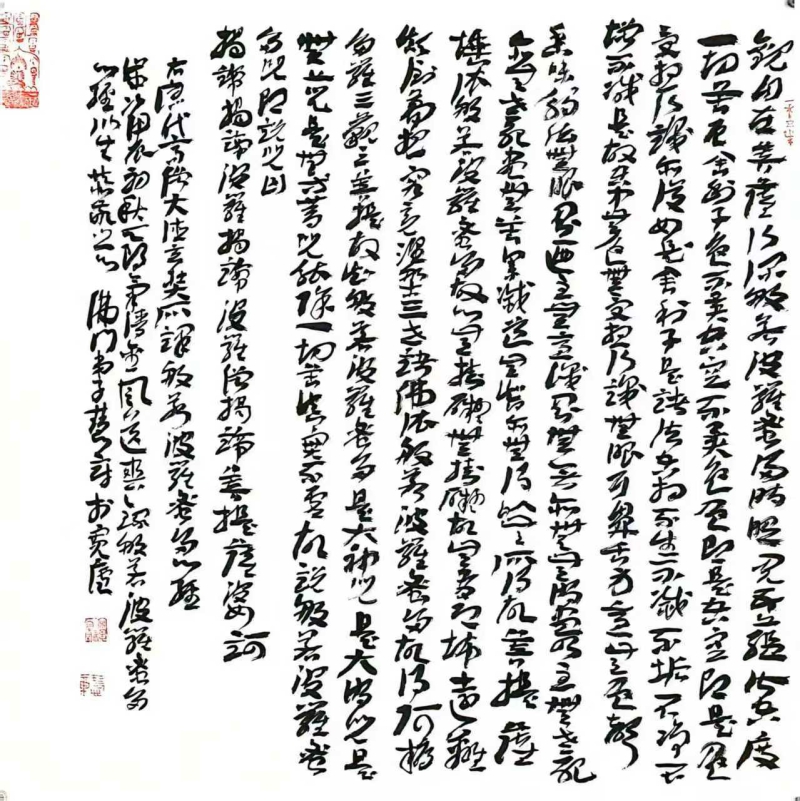 觀自在菩薩行深般若波羅蜜多時照見五蘊皆空度
一切苦厄舍利子色不異空空不異色色即是空空即是色
受想行識亦復如是舍利子是諸法空相不生不滅不垢不淨不
增不減是故空中無色無受想行識無眼耳鼻舌身意無色聲
香味觸法無眼界乃至無意識界無無明亦無無明盡乃至無老死
亦無老死盡無苦集滅道無智亦無得以無所得故菩提薩
埵依般若波羅蜜多故心無掛礙無掛礙故無有恐怖遠離
顛倒夢想究竟涅槃三世諸佛依般若波羅蜜多故得阿耨
多羅三藐三菩提故知般若波羅蜜多是大神咒是大明咒是
無上咒是無等等咒能除一切苦真實不虛故說般若波羅蜜
多咒即說咒曰
揭諦揭諦波羅揭諦波羅僧揭諦菩提薩婆訶
右唐代高僧大德玄奘所譯般若波羅蜜多心經
歲次甲辰初秋天朗氣清金風送爽敬錄般若波羅蜜多
心經以生恭敬之心 佛門弟子